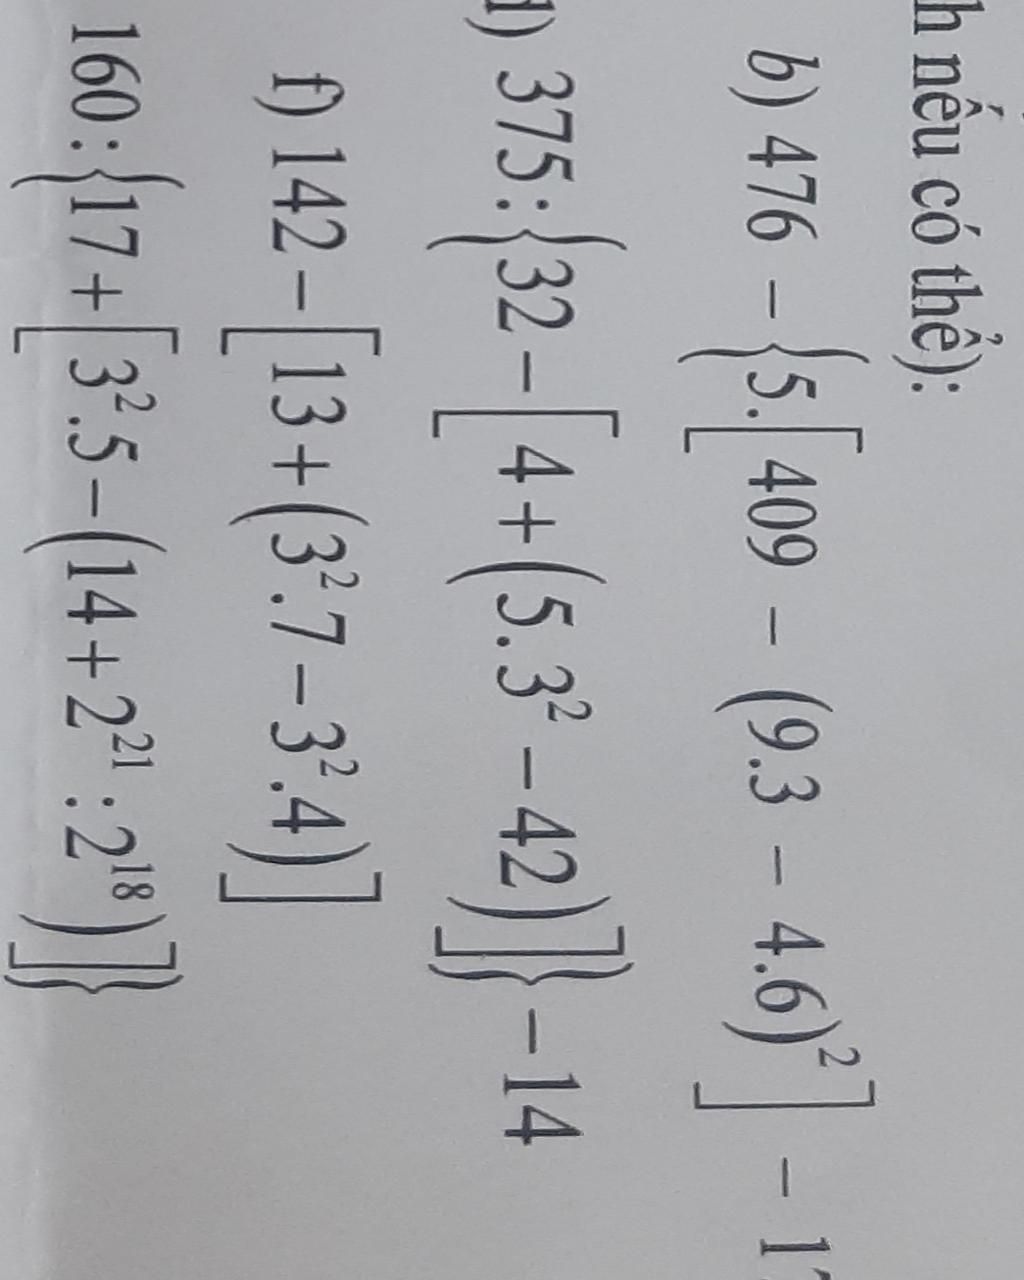 nếu có thể):
b) 476 – {5.[409 – (9.3 – 4.6)²] – 1
d) 375 : {32 – [4 + (5.3² – 42)]} – 14
f) 142 – [13 + (3².7 – 3².4)]
160 : {17 + [3².5 – (14 + 2²¹ : 2¹⁸)]}